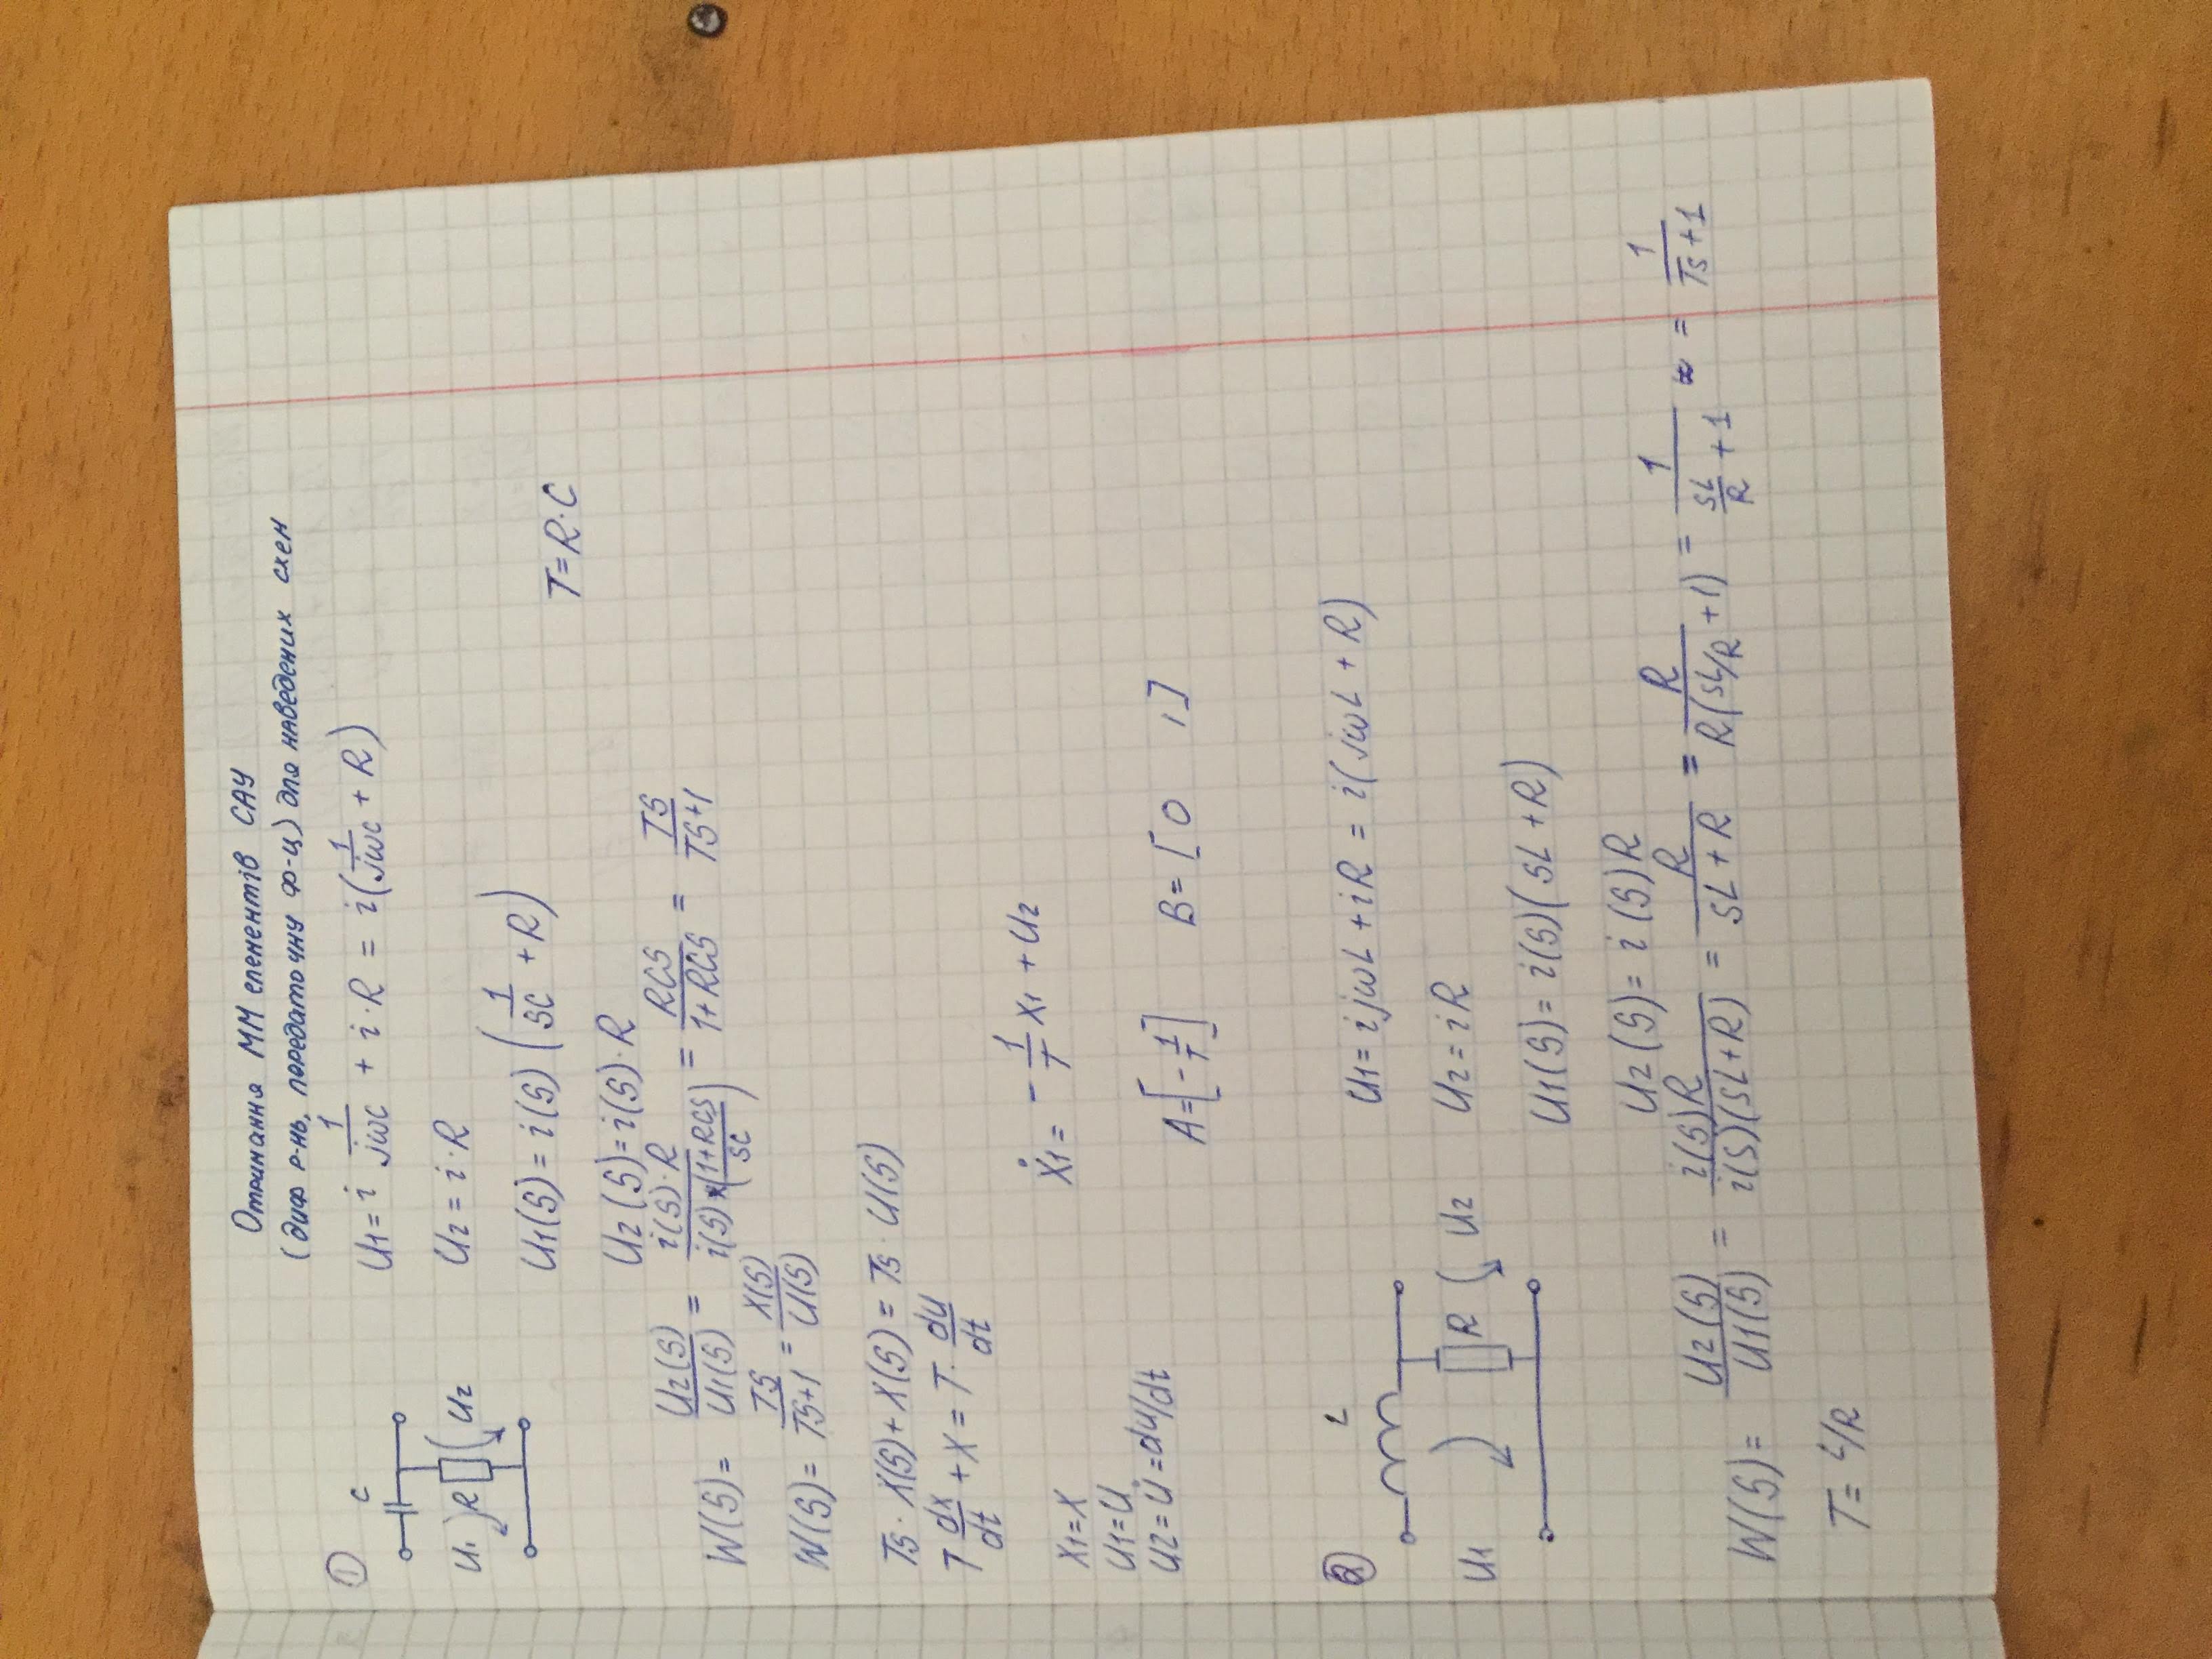 Отримання ММ елементів САУ
(диф р-нь, передаточну ф-ц) для наведених схем
1
C
U1 = i 1/jωC + i·R = i(1/jωC + R)
U1 R U2
U2 = i·R
U1(S) = i(S) (1/SC + R)
T=R·C
U2(S)=i(S)·R
W(S)= U2(S)/U1(S) = i(S)·R/i(S)*((1+RCS)/SC) = RCS/1+RCS = TS/TS+1
W(S)= TS/TS+1 = X(S)/U(S)
Ts·X(S)+X(S)=Ts·U(S)
T dx/dt + X = T· du/dt
Ẋ1 = - 1/T X1 + U2
X1=X
U1=U
U2=U̇=du/dt
A=[-1/T] B=[0 1]
2
L
U1 = ijωL + iR = i(jωL + R)
U1 R U2
U2 = iR
U1(S) = i(S)(SL + R)
U2(S) = i(S)R
W(S)= U2(S)/U1(S) = i(S)R/i(S)(SL+R) = R/SL+R = R/R(SL/R+1) = 1/SL/R+1 = 1/Ts+1
T= L/R